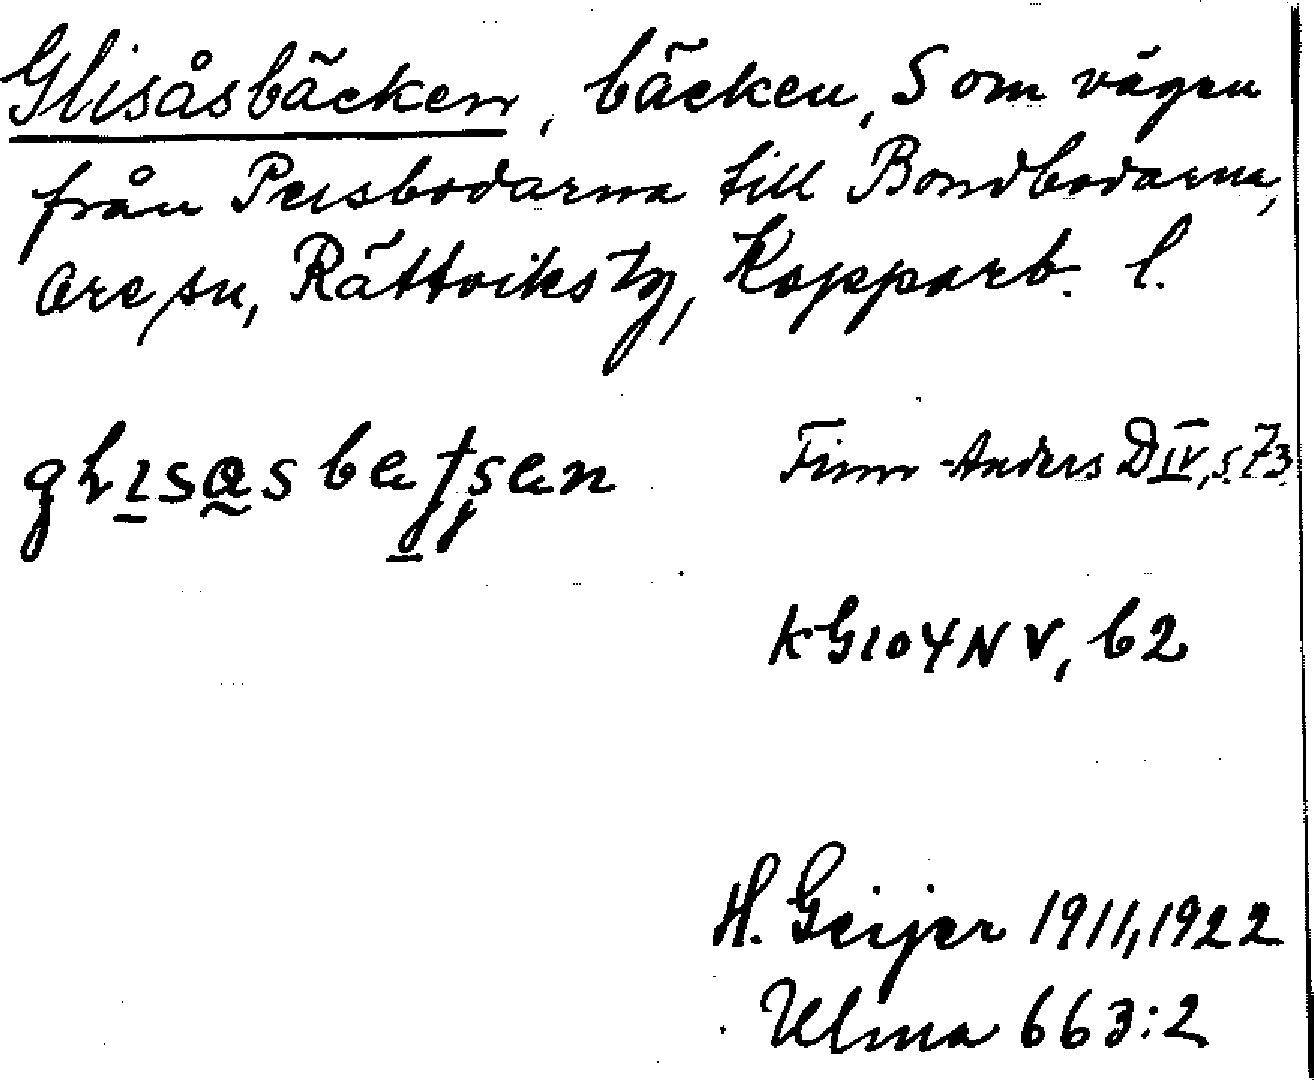 Glisåsbäcken, bäcken, S om vägen
från Persbodarna till Bondbodarna,
Ore sn, Rättviks tg, Kopparb. l.
Finn-Anders D IV, s. 73
KG104NV, b2
H. Geijer 1911, 1922
Ulma 663:2